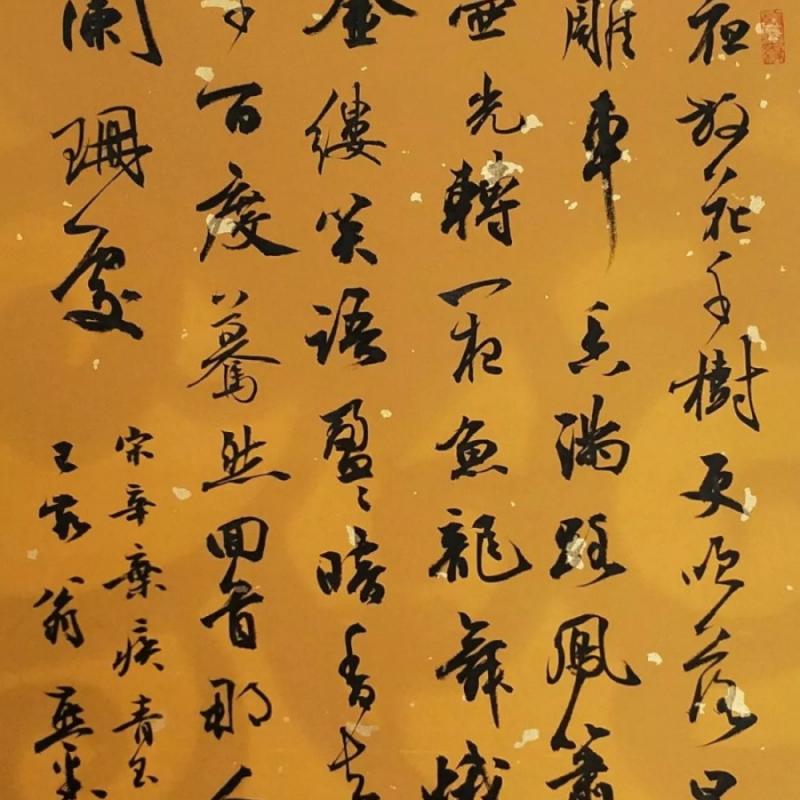 夜放花千樹更吹落
雕車香滿路鳳簫
壺光轉一夜魚龍舞蛾
金縷笑語盈〻暗香去
千百度驀然回首那人
闌珊處
宋辛棄疾青玉
翁